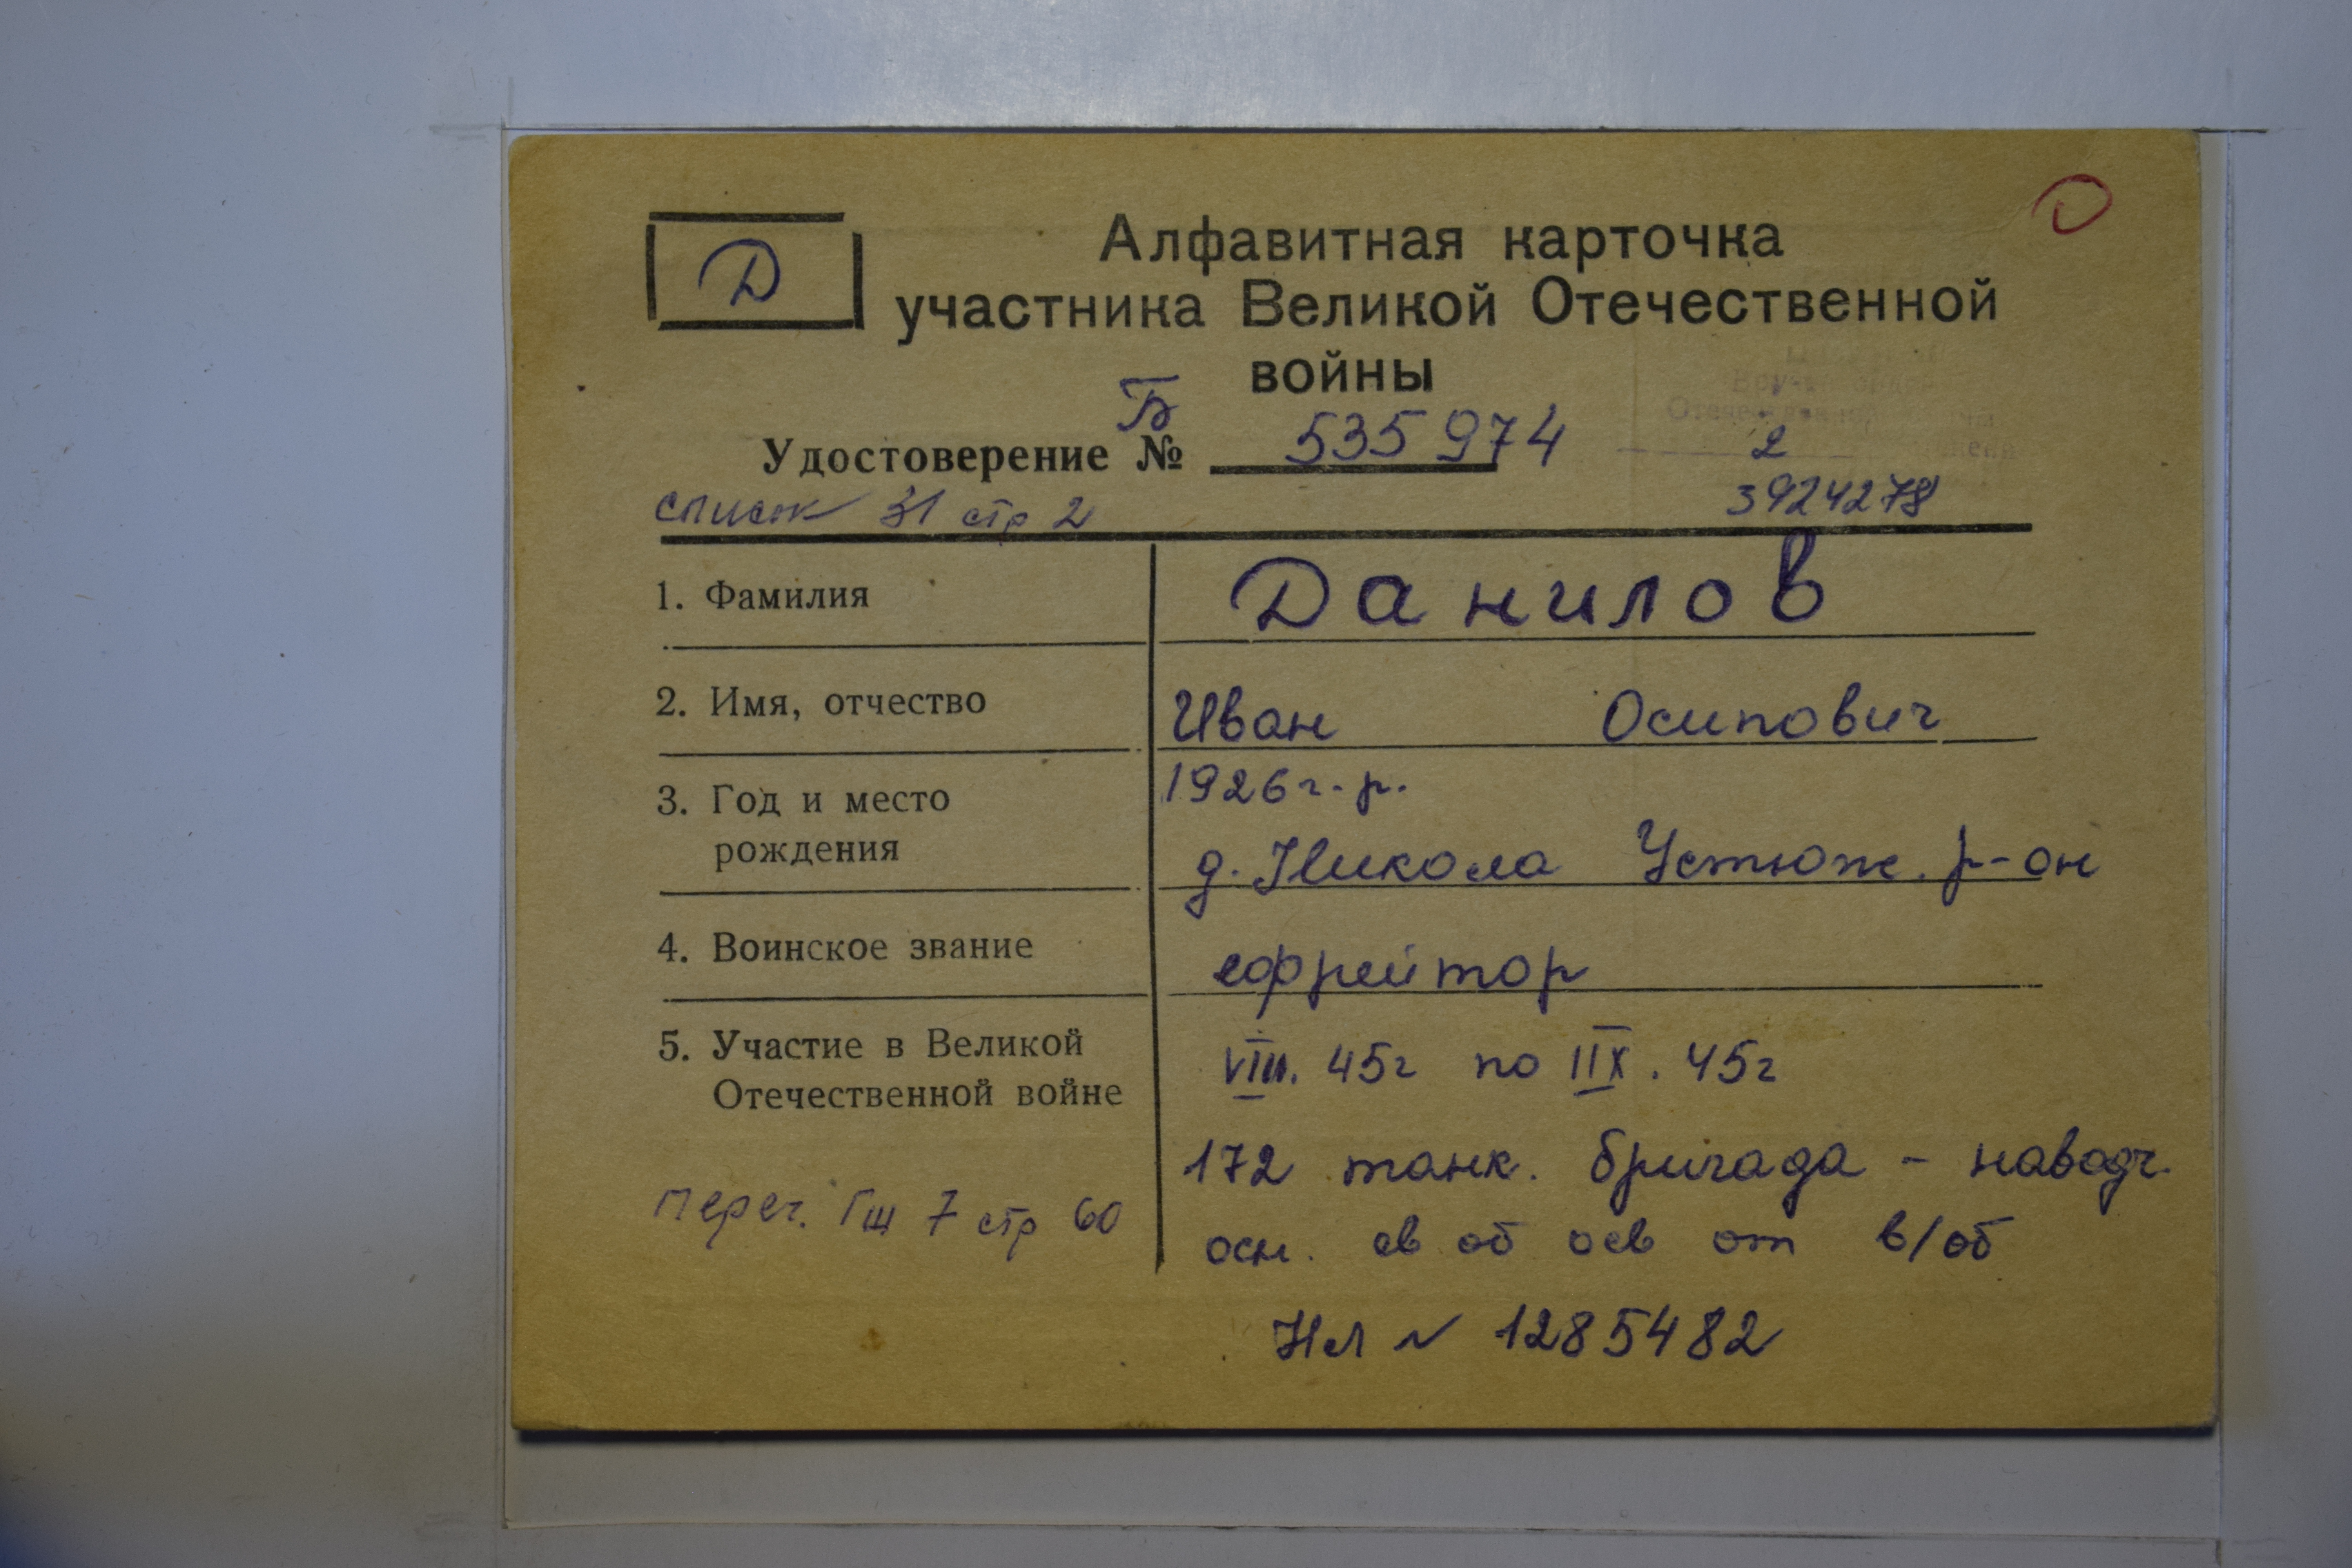 Д
Д
Алфавитная карточка
участника Великой Отечественной
войны
Б
Удостоверение № 535974
2
список 31 стр 2
3924278
1. Фамилия Данилов
2. Имя, отчество Иван Осипович
3. Год и место 1926г.р.
рождения д. Никола Устюж. р-он
4. Воинское звание ефрейтор
5. Участие в Великой VIII. 45г по IX. 45г
Отечественной войне
172 танк. бригада - наводч.
Перег. Гш 7 стр 60
осн. св об осв от в/об
Нл № 1285482